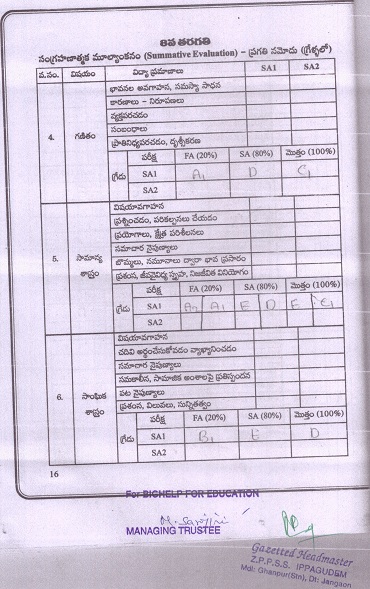 8వ తరగతి
సంగ్రహణాత్మక మూల్యాంకనం (Summative Evaluation) – ప్రగతి నమోదు (గ్రేళ్ళలో)
వ.సం. విషయం విద్యా ప్రమాణాలు SA1 SA2
భావనల అవగాహన, సమస్యా సాధన
కారణాలు – నిరూపణలు
వ్యక్తపరచడం
సంబంధాలు
4. గణితం
ప్రాతినిధ్యపరచడం, దృశ్యీకరణ
పరీక్ష FA (20%) SA (80%) మొత్తం (100%)
గ్రేడు SA1 A1 D C1
SA2
విషయావగాహన
ప్రశ్నించడం, పరికల్పనలు చేయడం
ప్రయోగాలు, క్షేత్ర పరిశీలనలు
సమాచార నైపుణ్యాలు
5. సామాన్య శాస్త్రం
బొమ్మలు, నమూనాల ద్వారా భావ ప్రసారం
ప్రశంస, జీవవైవిధ్య స్పృహ, నిజజీవిత వినియోగం
పరీక్ష FA (20%) SA (80%) మొత్తం (100%)
గ్రేడు SA1 A2 A1 E D E C1
SA2
విషయావగాహన
చదివి అర్థంచేసుకోవడం వ్యాఖ్యానించడం
సమాచార నైపుణ్యాలు
సమకాలీన, సామాజిక అంశాలపై ప్రతిస్పందన
6. సాంఘిక శాస్త్రం
పట నైపుణ్యాలు
ప్రశంస, విలువలు, సున్నితత్వం
పరీక్ష FA (20%) SA (80%) మొత్తం (100%)
గ్రేడు SA1 B1 E D
SA2
16
For BIGHELP FOR EDUCATION
MANAGING TRUSTEE
Gazetted Headmaster
Z.P.P.S.S. IPPAGUDEM
Mdl: Ghanpur(Stn), Dt: Jangaon